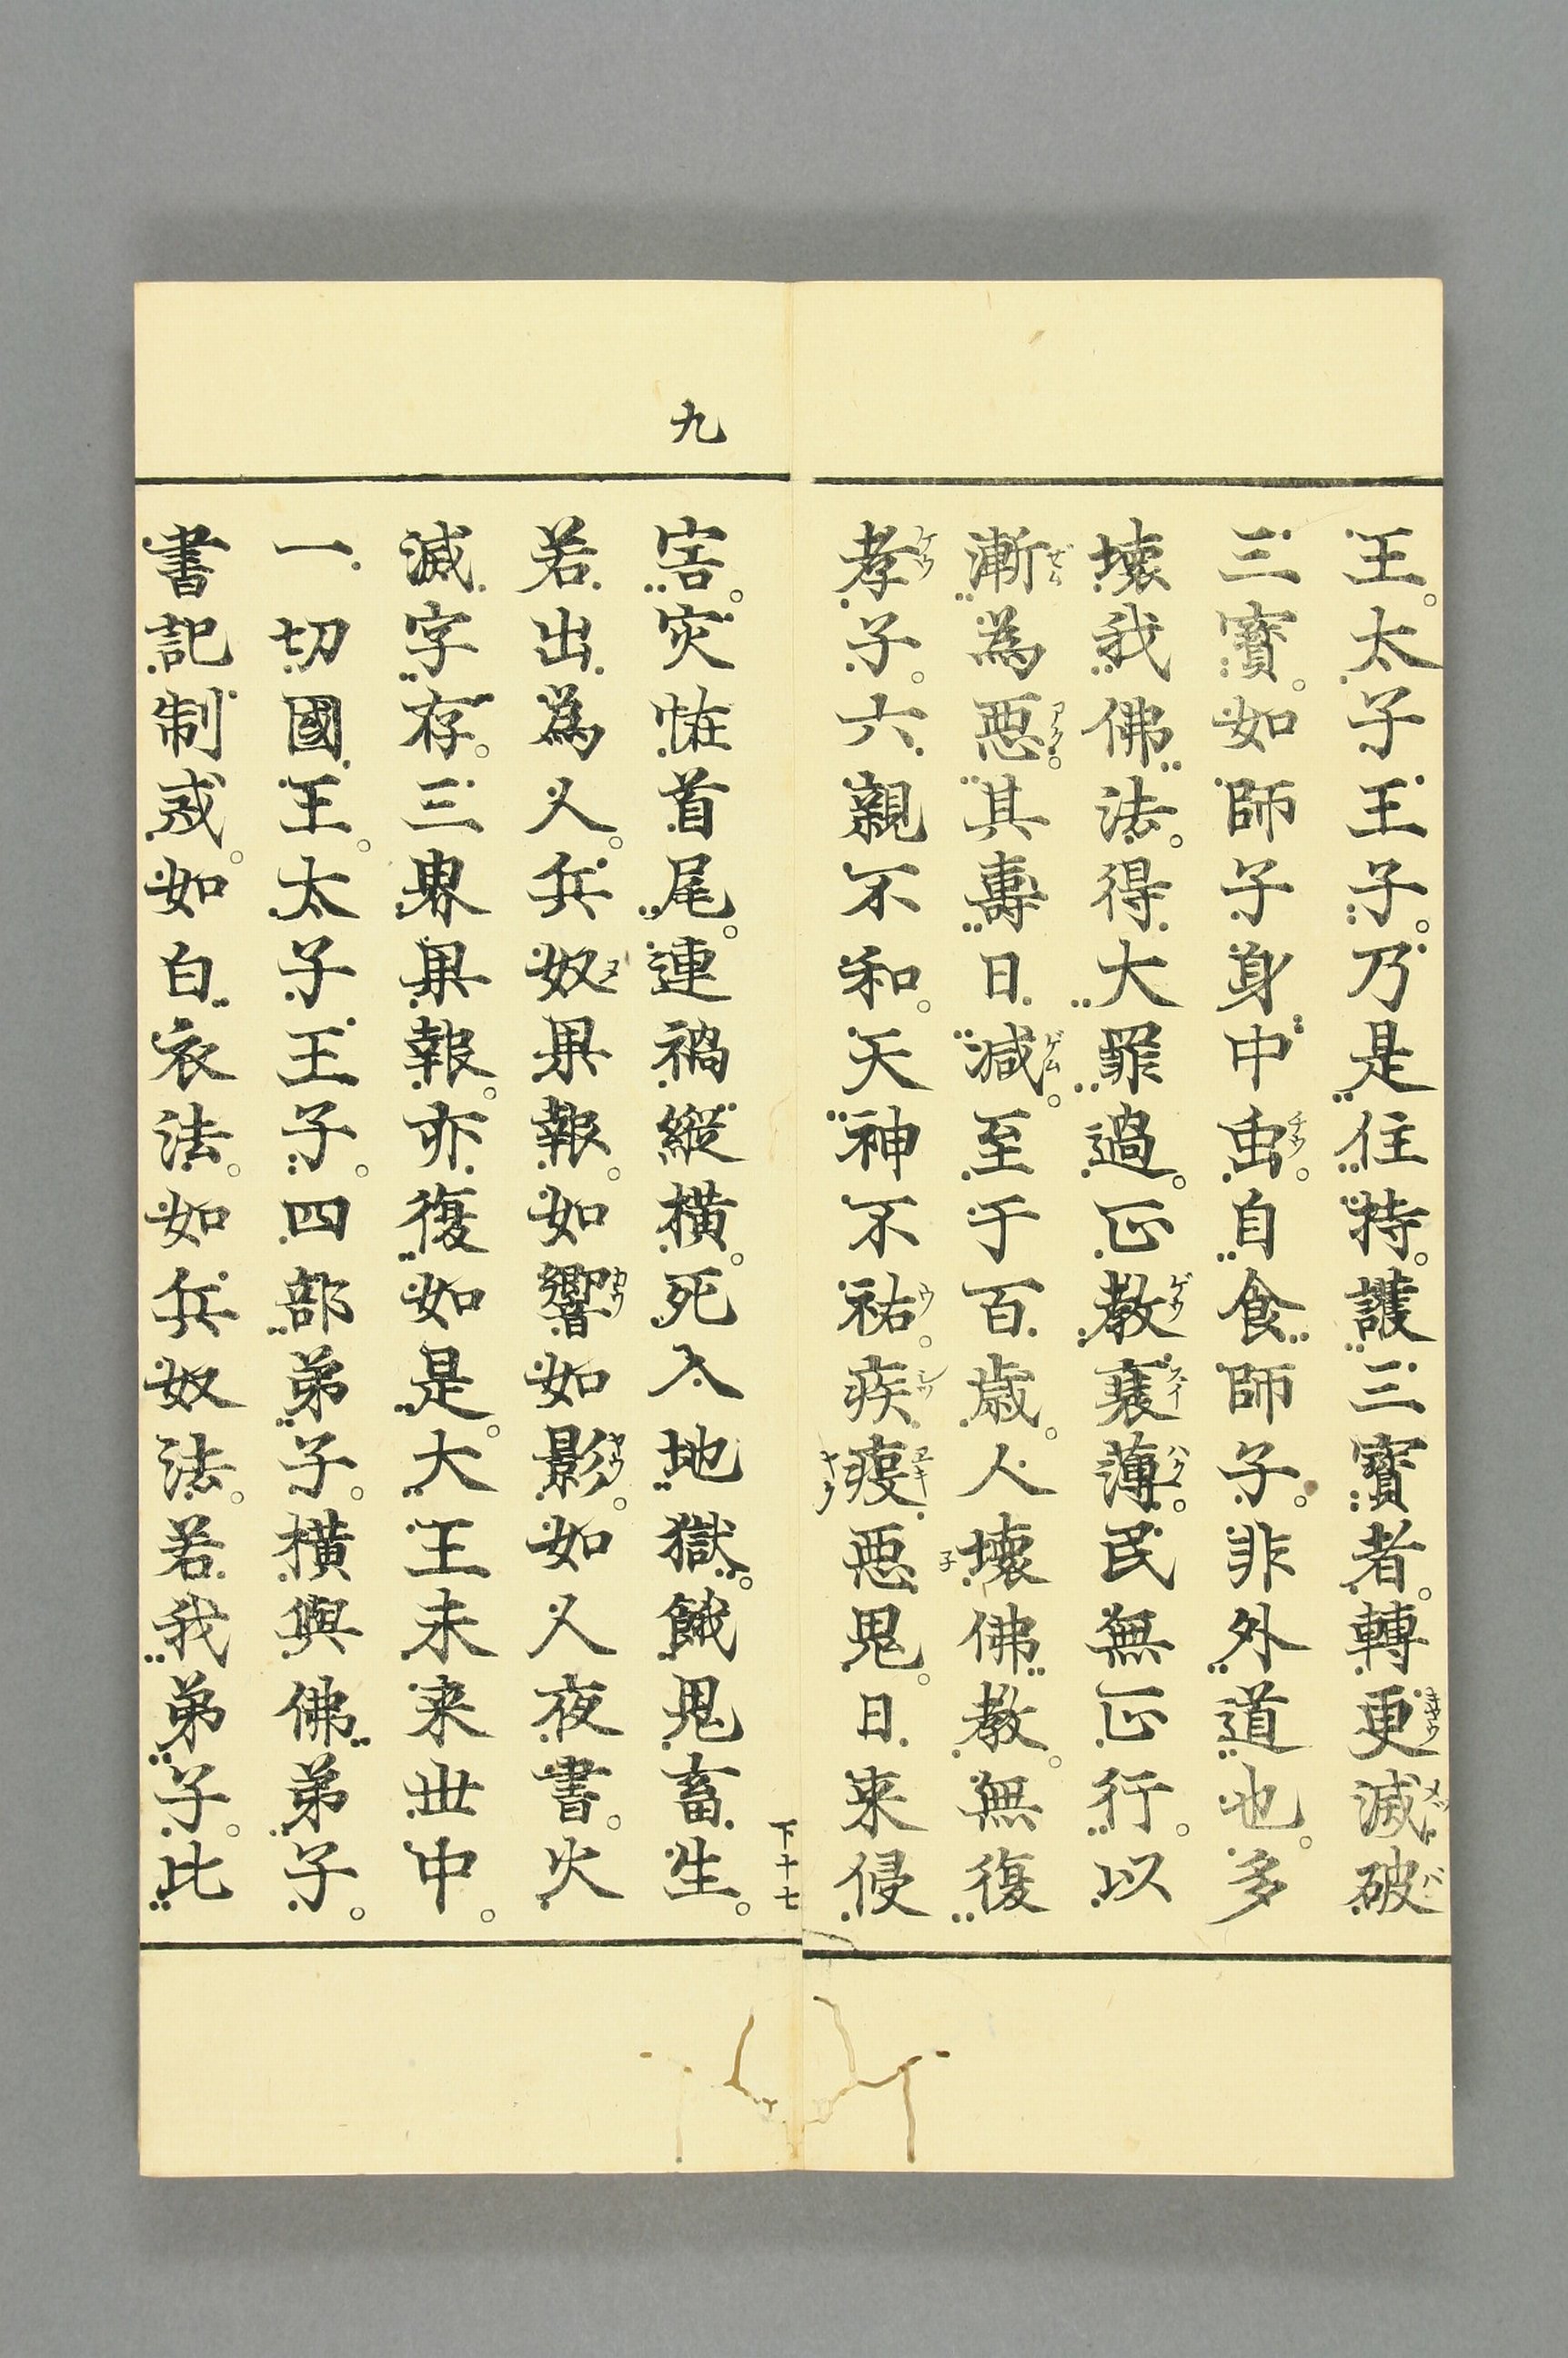 王。太子王子。乃是住持。護三寶者。轉更滅破
三寶。如師子身中虫。自食師子。非外道也。多
壞我佛法。得大罪過。正教衰薄。民無正行。以
漸為惡。其壽日減。至于百歳。人壞佛教。無復
孝子。六親不和。天神不祐。疾疫惡鬼。日来侵
九
害。灾恠首尾。連禍縱橫。死入地獄。餓鬼畜生。
若出爲人。兵奴果報。如響如影。如人夜書。火
滅字存。三界果報。亦復如是。大王未来世中。
一切國王。太子王子。四部弟子。橫與佛弟子。
書記制戒。如白衣法。如兵奴法。若我弟子。比
下十七